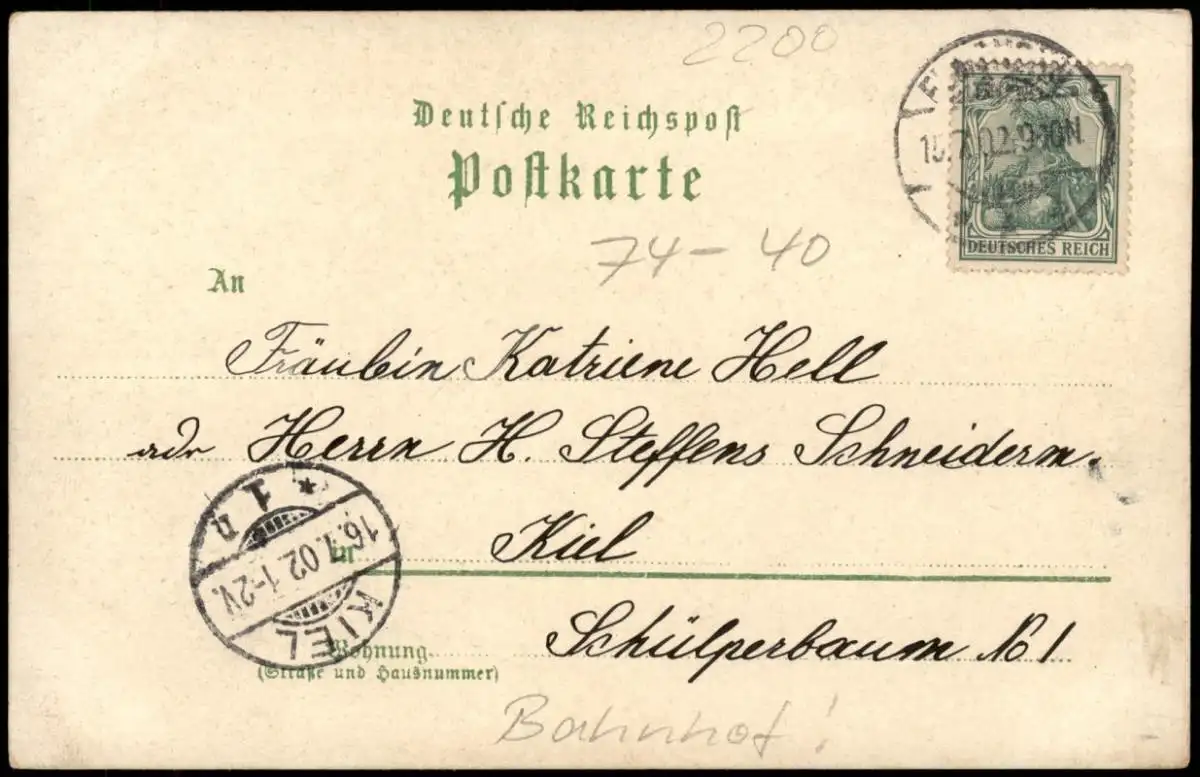 2200
Deutsche Reichspost
Postkarte
15.7.02.9-10N
DEUTSCHES REICH
74-40
An
Fräulein Katriene Hell
adr Herrn H. Steffens Schneiderm.
in Kiel
Schülperbaum № 1
Wohnung
(Straße und Hausnummer)
KIEL
16.7.02.1-2V.
* 1 n
Bahnhof!